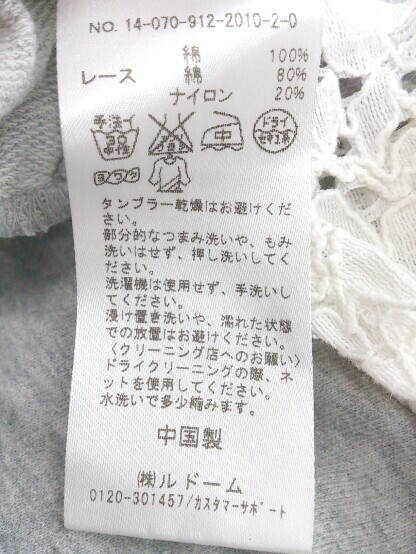 NO. 14-070-912-2010-2-0
綿 100%
レース 綿 80%
ナイロン 20%
手洗イ
30
中性
中
ドライ
セキユ系
ヨワク
タンブラー乾燥はお避けくだ
さい。
部分的なつまみ洗いや、もみ
洗いはせず、押し洗いしてく
ださい。
洗濯機は使用せず、手洗いし
てください。
浸け置き洗いや、濡れた状態
での放置はお避けください。
〈クリーニング店へのお願い〉
ドライクリーニングの際、ネ
ットを使用してください。
水洗いで多少縮みます。
中国製
(株)ルドーム
0120-301457/カスタマーサポート